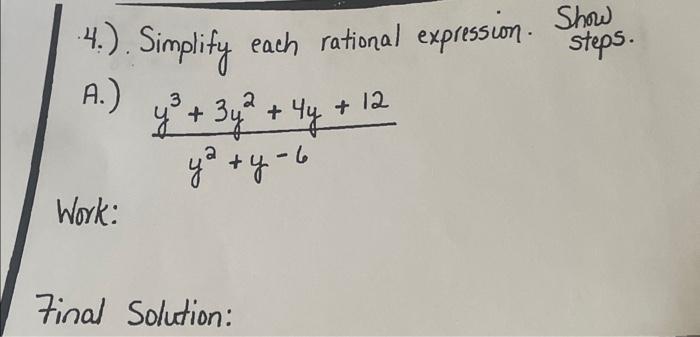 4.). Simplify each rational expression. Show steps.
A.) y³ + 3y² + 4y + 12
y² + y - 6
Work:
Final Solution: